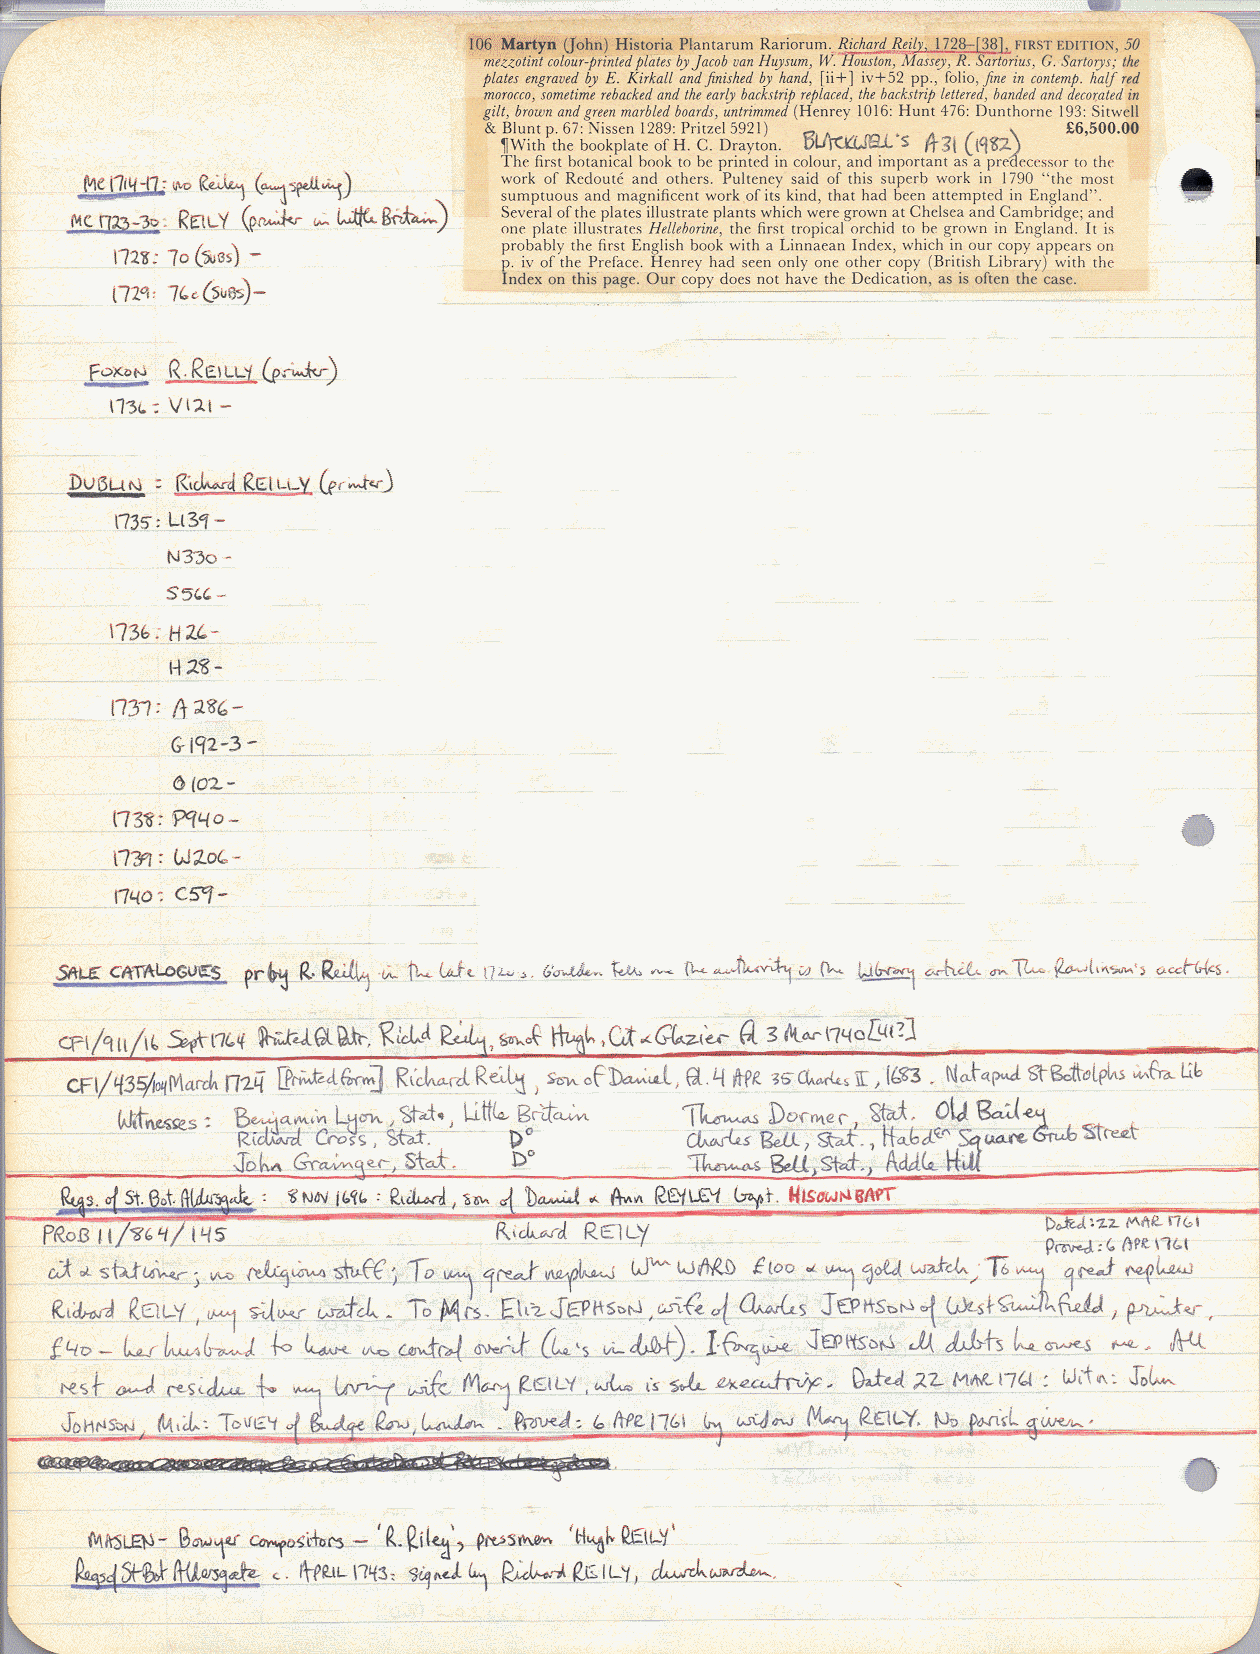 106 Martyn (John) Historia Plantarum Rariorum. Richard Reily, 1728–[38], FIRST EDITION, 50
mezzotint colour-printed plates by Jacob van Huysum, W. Houston, Massey, R. Sartorius, G. Sartorys; the
plates engraved by E. Kirkall and finished by hand, [ii+] iv+52 pp., folio, fine in contemp. half red
morocco, sometime rebacked and the early backstrip replaced, the backstrip lettered, banded and decorated in
gilt, brown and green marbled boards, untrimmed (Henrey 1016: Hunt 476: Dunthorne 193: Sitwell
& Blunt p. 67: Nissen 1289: Pritzel 5921) £6,500.00
¶With the bookplate of H. C. Drayton. BLACKWEL'S A31 (1982)
The first botanical book to be printed in colour, and important as a predecessor to the
work of Redouté and others. Pulteney said of this superb work in 1790 “the most
sumptuous and magnificent work of its kind, that had been attempted in England”.
Several of the plates illustrate plants which were grown at Chelsea and Cambridge; and
one plate illustrates Helleborine, the first tropical orchid to be grown in England. It is
probably the first English book with a Linnaean Index, which in our copy appears on
p. iv of the Preface. Henrey had seen only one other copy (British Library) with the
Index on this page. Our copy does not have the Dedication, as is often the case.
MC 1714-17: no Reiley (any spelling)
MC 1723-30: REILY (printer in Little Britain)
1728: 70 (SUBS) –
1729: 76c (SUBS) –
FOXON R. REILLY (printer)
1736: V121 –
DUBLIN = Richard REILLY (printer)
1735: L139 –
N330 –
S566 –
1736: H26 –
H28 –
1737: A286 –
G192-3 –
O102 –
1738: P940 –
1739: W206 –
1740: C59 –
SALE CATALOGUES pr by R. Reilly in the late 1720s. Goulden tells me the authority is the Library article on Tho. Rawlinson's acct bks.
CF1/911/16 Sept 1764 Printed fd Ptr. Richd Reily, son of Hugh, Cit & Glazier fd 3 Mar 1740 [41?]
CF1/435/104 March 1724 [Printed form] Richard Reily, son of Daniel, fd. 4 APR 35 Charles II, 1683. Nat apud St Bottolphs infra Lib
Witnesses: Benjamin Lyon, Stat., Little Britain Thomas Dormer, Stat. Old Bailey
Richard Cross, Stat. Do Charles Bell, Stat., Habden Square Grub Street
John Grainger, Stat. Do Thomas Bell, Stat., Addle Hill
Regs. of St. Bot. Aldersgate: 8 NOV 1696: Richard, son of Daniel & Ann REYLEY bapt. HIS OWN BAPT
PROB 11/864/145 Richard REILY Dated: 22 MAR 1761
Proved: 6 APR 1761
cit & stationer; no religious stuff; To my great nephew Wm WARD £100 & my gold watch; To my great nephew
Richard REILY, my silver watch. To Mrs. Eliz JEPHSON, wife of Charles JEPHSON of West Smithfield, printer,
£40 – her husband to have no control over it (he's in debt). I forgive JEPHSON all debts he owes me. All
rest and residue to my loving wife Mary REILY, who is sole executrix. Dated 22 MAR 1761: Witn: John
JOHNSON, Mich: TOVEY of Budge Row, London. Proved: 6 APR 1761 by widow Mary REILY. No parish given.
MASLEN – Bowyer compositors – 'R. Riley'; pressmen 'Hugh REILY'
Regs of St Bot Aldersgate c. APRIL 1743: signed by Richard REILY, churchwarden.